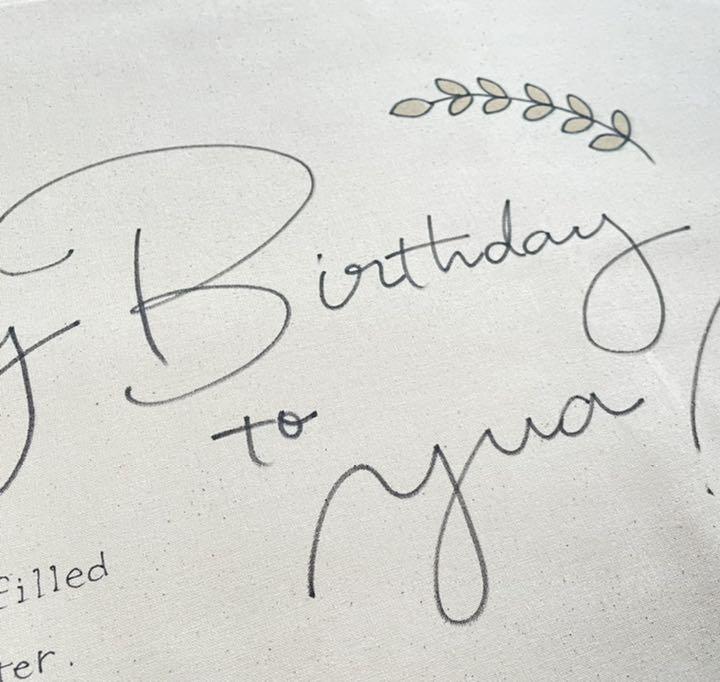 y Birthday
to yua !
filled
ter.